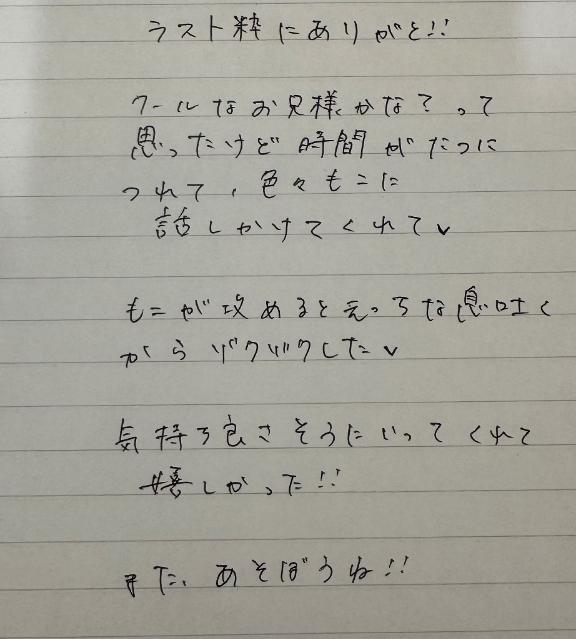 ラスト粋にありがと!!
クールなお兄様かな?って
思ったけど時間がたつに
つれて、色々もこに
話しかけてくれて♥
もこが攻めるとえっちな息吐く
からゾクゾクした♥
気持ち良さそうにいってくれて
嬉しかった!!
また、あそぼうね!!